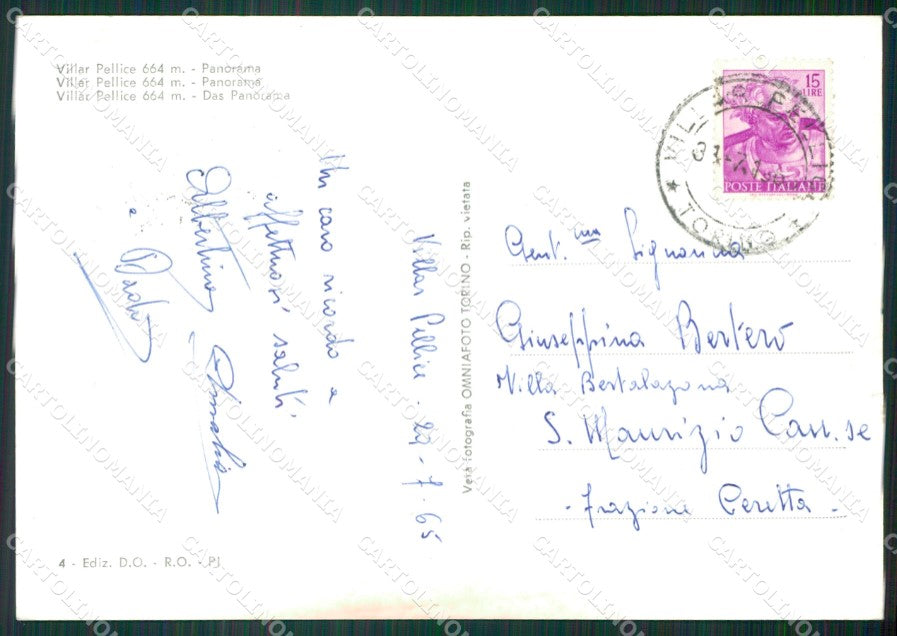 Villar Pellice 664 m. - Panorama
Villar Pellice 664 m. - Panorama
Villar Pellice 664 m. - Das Panorama
Un caro ricordo e
affettuosi saluti.
Albertina, Amalia
e
Villar Pellice . 29 - 7 - 65
4 - Ediz. D.O. - R.O. - PJ
Vera fotografia OMNIAFOTO TORINO - Rip. vietata
15
LIRE
POSTE ITALIANE
VILLAR PELLICE
TORINO
Gent.ma Signorina
Giuseppina Bertero
Villa Bertalazona
S. Maurizio Can.se
- frazione Ceretta -
CARTOLINOMANIA